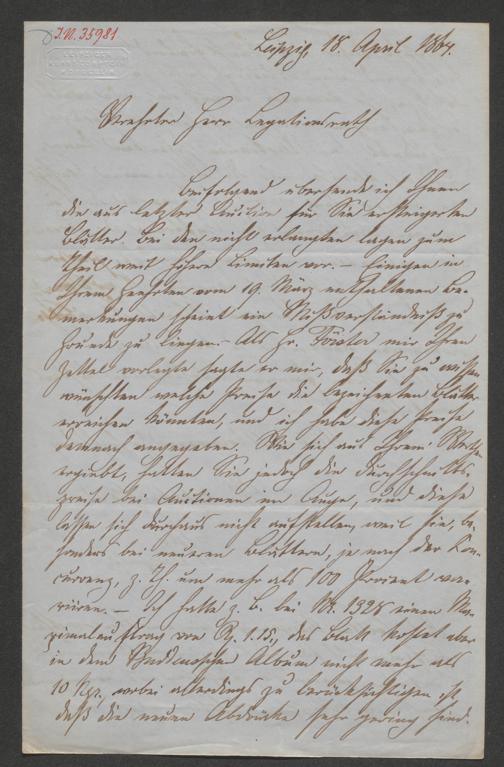 J.N. 35981
Leipzig, 18. April 1864.
Verehrter Herr Legationsrath
Beifolgend übersende ich Ihnen
die aus letzter Auction für Sie ersteigerten
Blätter. Bei den nicht erlangten lagen zum
Theil weit höhere Limiten vor. – Einigen in
Ihrem Geehrten vom 19. März enthaltenen Be-
merkungen scheint ein Mißverständniß zu
Grunde zu liegen. – Als Hr. Förster mir Ihren
Zettel vorlegte sagte er mir, daß Sie zu wissen
wünschten welche Preise die bezeichneten Blätter
erreichen könnten, und ich habe diese Preise
demnach angegeben. Wie sich aus Ihrem
ergiebt, hatten Sie jedoch die Durchschnitts-
preise bei Auctionen im Auge, und diese
lassen sich durchaus nicht aufstellen, weil sie, be-
sonders bei neueren Blättern, je nach der Con-
currenz, z. Th. um mehr als 100 Procent va-
riiren. – Ich hatte z. B. bei Nr. 1328 einen Ma-
ximalauftrag von 1.15., das Blatt kostet aber
in dem Album nicht mehr als
10 Ngr. wobei allerdings zu berücksichtigen ist,
daß die neuen Abdrücke sehr gering sind.